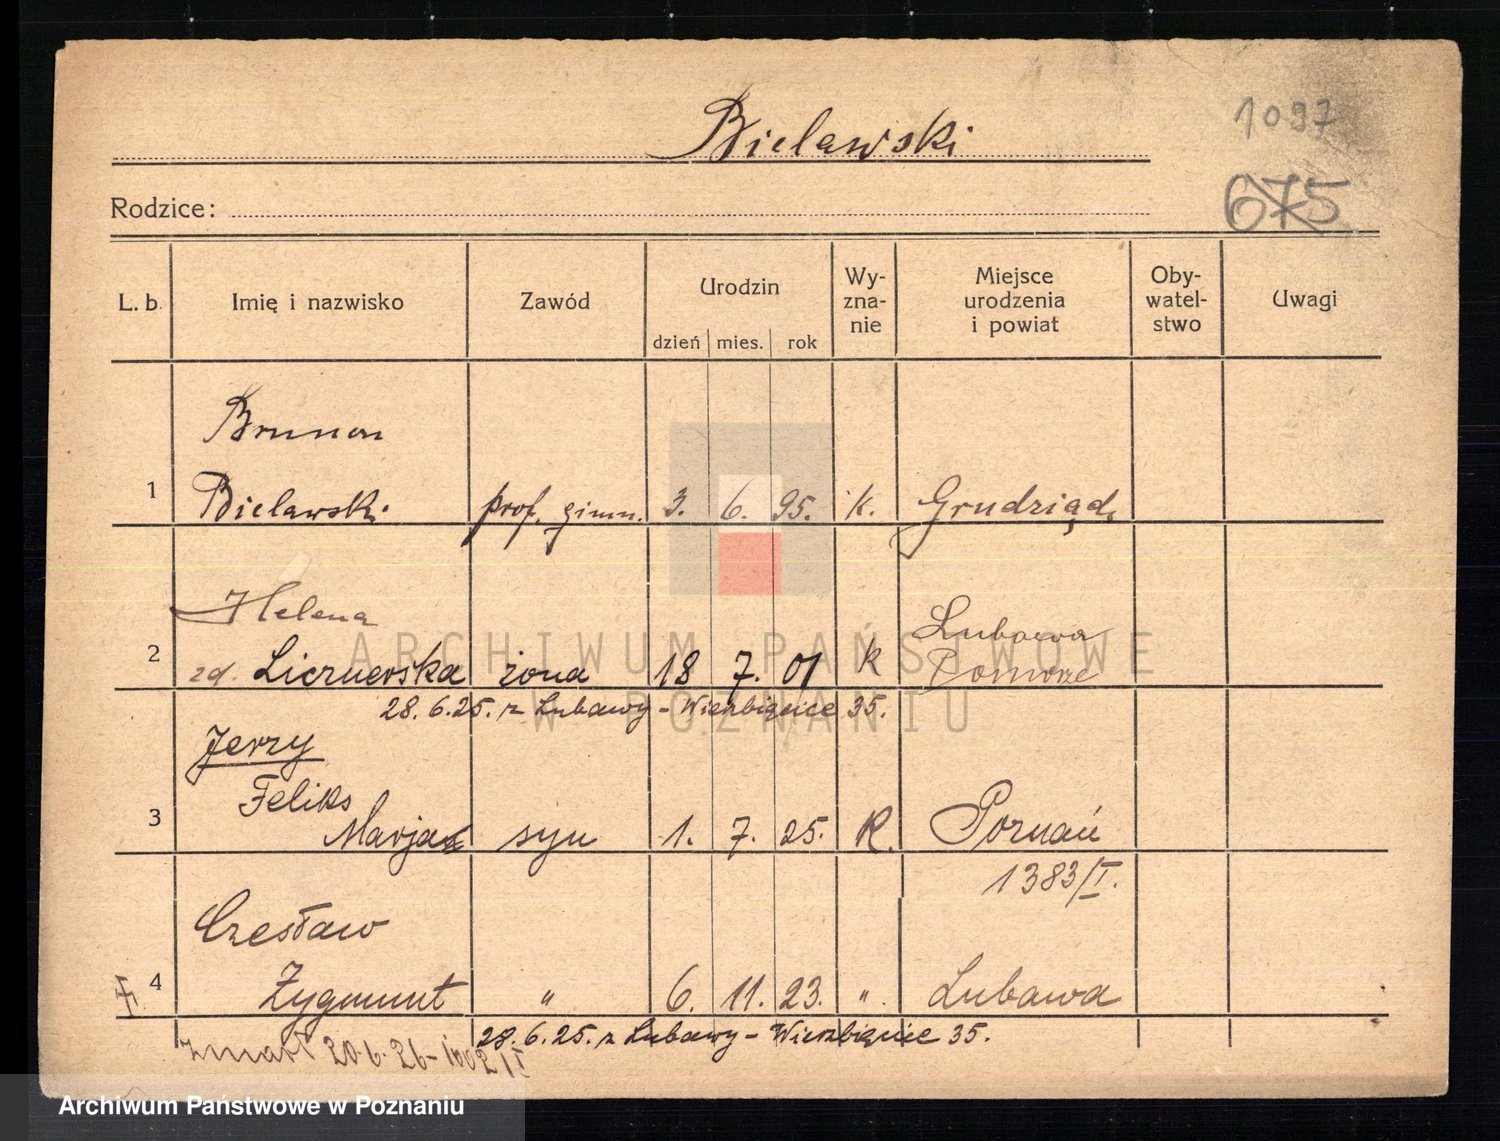 Bielawski
1097
675
Rodzice:
L. b. Imię i nazwisko Zawód Urodzin dzień mies. rok Wy-zna-nie Miejsce urodzenia i powiat Oby-watel-stwo Uwagi
Brunon
1 Bielawski prof. gimn. 3. 6. 95. k. Grudziądz
Helena Lubawa
2 zd. Licznerska żona 18 7. 01 k Pomorze
28. 6. 25. z Lubawy - Wierzbięcice 35.
Jerzy
Feliks
3 Marjan syn 1. 7. 25. k. Poznań
1383/I.
Czesław
4 Zygmunt " 6. 11. 23. " Lubawa
28. 6. 25. z Lubawy - Wierzbięcice 35.
zmarł 20. 6. 26 -
ARCHIWUM PAŃSTWOWE
W POZNANIU
Archiwum Państwowe w Poznaniu